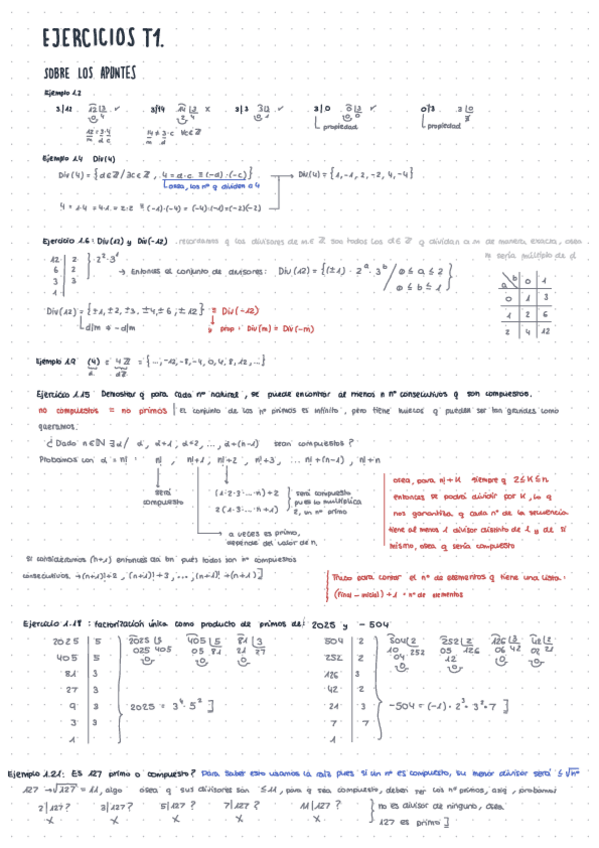 EJERCICIOS T1.
SOBRE LOS APUNTES
Ejemplo 1.2
3|12 12|3 ✓ 3/14 14|3 x 3|3 3|3 ✓ 3|0 0|3 ✓ 0/3 3|0
0 4 2 4 0 1 0 0
12 = 3·4 14 ≠ 3·c ∀c∈Z propiedad propiedad
m d c m d
Ejemplo 1.4 Div(4)
Div(4) = {d∈Z / ∃c∈Z, 4 = d·c = (-d)·(-c)} → Div(4) = {1, -1, 2, -2, 4, -4}
osea, los nº q dividen a 4
4 = 1·4 = 4·1 = 2·2 = (-1)·(-4) = (-4)·(-1) = (-2)(-2)
Ejercicio 1.6: Div(12) y Div(-12) recordamos q los divisores de m∈Z son todos los d∈Z q dividan a m de manera exacta, osea
m sería múltiplo de d
12 | 2 } 2²·3¹
6 | 2 → Entonces el conjunto de divisores: Div(12) = {(±1)·2ᵃ·3ᵇ / 0≤a≤2
3 | 3 / 0≤b≤1}
1
a\b 0 1
0 1 3
1 2 6
2 4 12
Div(12) = {±1, ±2, ±3, ±4, ±6, ±12} = Div(-12)
d|m ⇔ -d|m prop. Div(m) = Div(-m)
Ejemplo 1.9 (4) = 4Z = {..., -12, -8, -4, 0, 4, 8, 12, ...}
d dZ
Ejercicio 1.15 Demostrar q para cada nº natural, se puede encontrar al menos n nº consecutivos q son compuestos.
no compuestos = no primos | el conjunto de los nº primos es infinito, pero tiene huecos q pueden ser tan grandes como
queramos.
¿Dado n∈N ∃a/ a, a+1, a+2, ..., a+(n-1) sean compuestos?
Probamos con a = n! : n!, n!+1, n!+2, n!+3, ... n!+(n-1), n!+n
será (1·2·3·...·n)+2 será compuesto
compuesto 2(1·3·...·n+1) pues lo multiplica
2, un nº primo
a veces es primo,
depende del valor de n.
osea, para n!+K siempre q 2≤K≤n
entonces se podrá dividir por K, lo q
nos garantiza q cada nº de la secuencia
tiene al menos 1 divisor distinto de 1 y de sí
mismo, osea q sería compuesto
Si consideramos (n+1) entonces da bn pues todos son nº compuestos
consecutivos → (n+1)!+2, (n+1)!+3, ..., (n+1)!+(n+1)]
Truco para contar el nº de elementos q tiene una lista:
(final - inicial) + 1 = nº de elementos
Ejercicio 1.18: factorización única como producto de primos de: 2025 y -504
2025 | 5 2025|5 405|5 81|3 504 | 2 504|2 252|2 126|2 42|2
405 | 5 025 405 05 81 21 27 252 | 2 10 252 05 126 06 42 02 21
81 | 3 0 0 0 126 | 3 04 12 0 0
27 | 3 42 | 2 0 0
9 | 3 2025 = 3⁴·5²] 21 | 3 -504 = (-1)·2³·3²·7]
3 | 3 7 | 7
1 1
Ejemplo 1.21: Es 127 primo o compuesto? Para saber esto usamos la raíz pues si un nº es compuesto, su menor divisor será ≤√n
127 → √127 = 11,algo osea q sus divisores son ≤11, para q sea compuesto, deben ser los nº primos, así q, probamos
2|127? 3|127? 5|127? 7|127? 11|127? no es divisor de ninguno, osea
x x x x x 127 es primo]